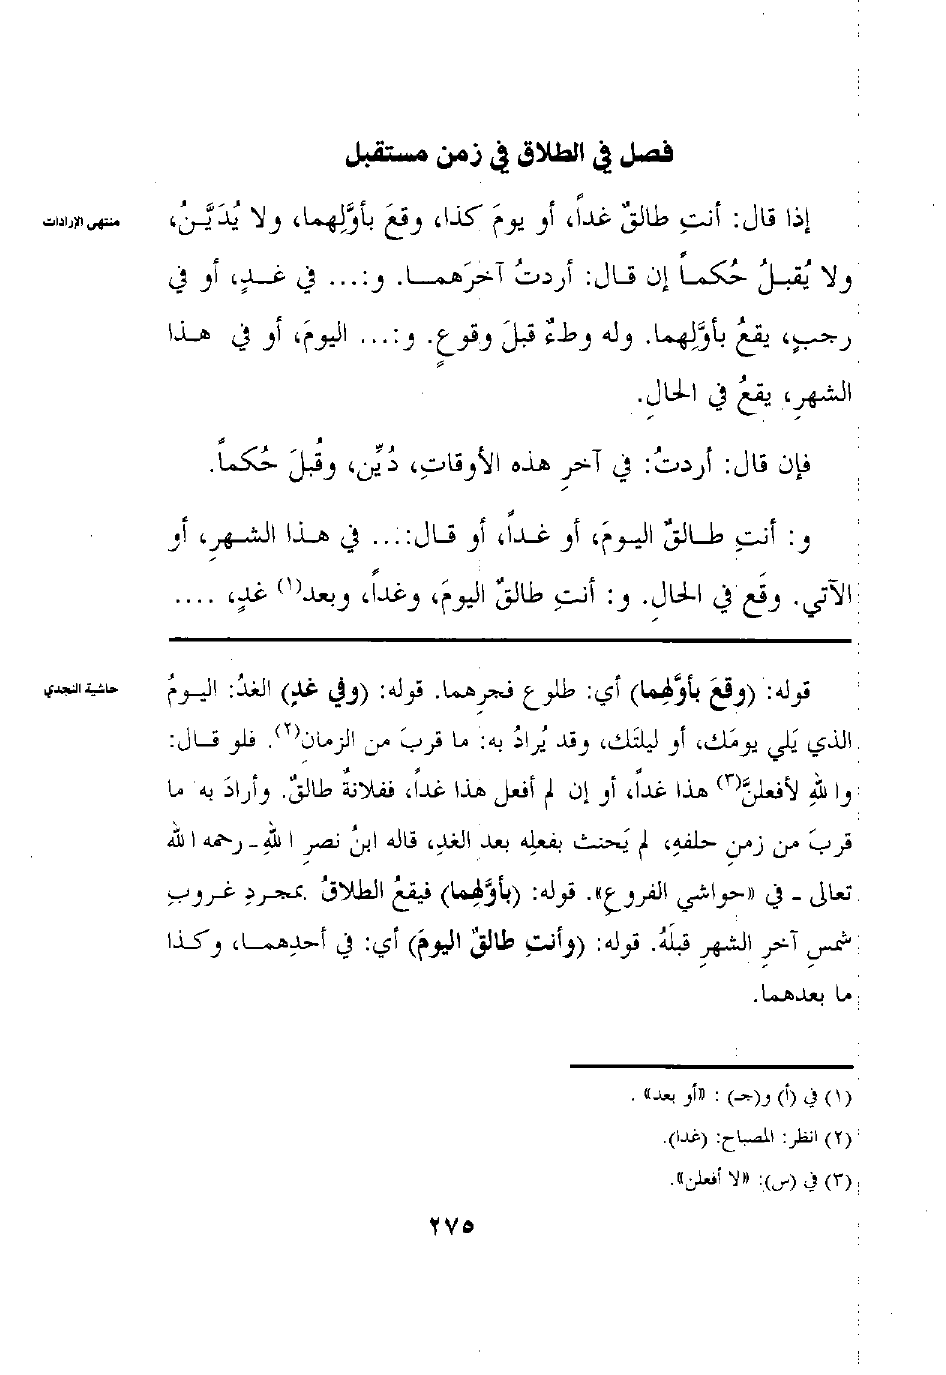 فصل في الطلاق في زمن مستقبل
منتهى الإرادات
إذا قال: أنتِ طالقٌ غداً، أو يومَ كذا، وقعَ بأوَّلِهما، ولا يُدَيَّنُ،
ولا يُقبلُ حُكماً إن قال: أردتُ آخرَهما. و:... في غدٍ، أو في
رجبٍ، يقعُ بأوَّلِهما. وله وطءٌ قبلَ وقوعٍ. و:... اليومَ، أو في هذا
الشهرِ، يقعُ في الحالِ.
فإن قال: أردتُ: في آخرِ هذه الأوقاتِ، دُيِّن، وقُبلَ حُكماً.
و: أنتِ طالقٌ اليومَ، أو غداً، أو قال:... في هذا الشهرِ، أو
الآتي. وقَع في الحالِ. و: أنتِ طالقٌ اليومَ، وغداً، وبعد(١) غدٍ، ....
حاشية النجدي
قوله: (وقعَ بأوَّلهما) أي: طلوع فجرهما. قوله: (وفي غدٍ) الغدُ: اليومُ
الذي يَلي يومَك، أو ليلتَك، وقد يُرادُ به: ما قربَ من الزمان(٢). فلو قال:
واللهِ لأفعلنَّ(٣) هذا غداً، أو إن لم أفعل هذا غداً، ففلانةٌ طالقٌ. وأرادَ به ما
قربَ من زمنِ حلفهِ، لم يَحنث بفعلِه بعد الغدِ، قاله ابنُ نصرِ اللهِ ـ رحمه الله
تعالى ـ في «حواشي الفروعِ». قوله: (بأوَّلهما) فيقعُ الطلاقُ بمجردِ غروبِ
شمسِ آخرِ الشهرِ قبلَهُ. قوله: (وأنتِ طالقٌ اليومَ) أي: في أحدِهما، وكذا
ما بعدهما.
(١) في (أ) و(جـ) : «أو بعد» .
(٢) انظر: المصباح: (غدا).
(٣) في (س): «لا أفعلن».
٢٧٥